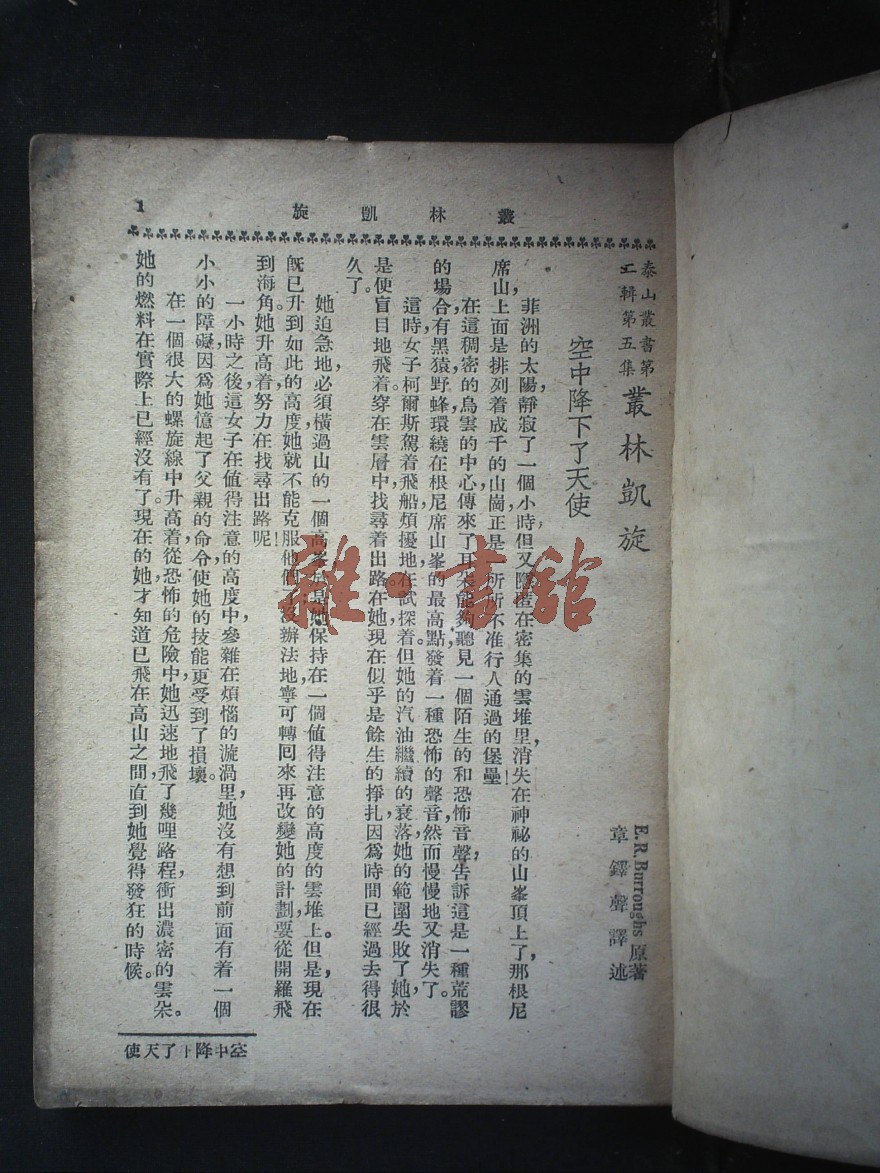 叢林凱旋
1
泰山叢書第
二輯第五集
叢林凱旋
E. R. Burroughs 原著
章鐸聲譯述
空中降下了天使
非洲的太陽,靜寂了一個小時,但又隱在密集的雲堆里,消失在神祕的山峯頂上了,那根尼
席山上面是排列着成千的山崗,正是一所所不准行人通過的堡壘!
在這稠密的烏雲的中心,傳來了耳朵能夠聽見一個陌生的和恐怖音聲,告訴這是一種荒謬
的場合,有黑猿野蜂環繞在根尼席山峯的最高點,發着一種恐怖的聲音,然而慢慢地又消失了。
這時女子柯爾斯駕着飛船煩擾地在試探着。但她的汽油繼續的衰落,她的範圍失敗了,她於
是便盲目地飛着。穿在雲層中,找尋着出路。在她現在似乎是餘生的掙扎,因爲時間已經過去得很
久了。
她迫急地,必須橫過山的一個高峯,於是她保持在一個値得注意的高度的雲堆上。但是,現在
旣已升到如此的高度,她就不能克服他們了,沒辦法地,寧可轉回來,再改變她的計劃,要從開羅飛
到海角。她升高着,努力在找尋出路呢!
一小時之後,這女子在値得注意的高度中,參雜在煩惱的漩渦里,她沒有想到前面有着一個
小小的障礙,因爲她憶起了父親的命令,使她的技能更受到了損壞。
在一個很大的螺旋線中升高着,從恐怖的危險中,她迅速地飛了幾哩路程,衝出濃密的雲朵。
她的燃料在實際上已經沒有了。現在的她,才知道已飛在高山之間,直到她覺得發狂的時候。
空中降下了天使
雜·書館